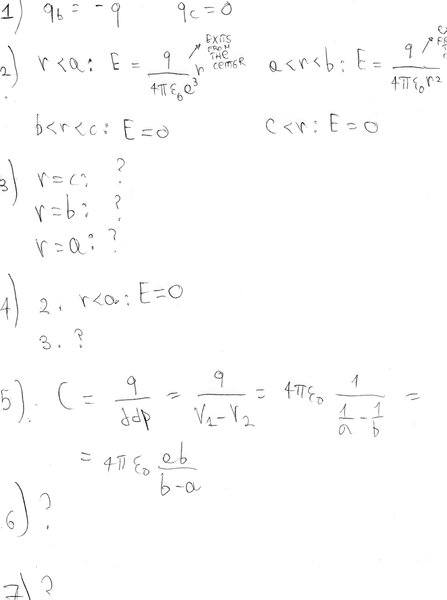 1) q_b = -q q_c = 0
2) r<a: E = q/(4πε₀a³) r EXITS FROM THE CENTER a<r<b: E = q/(4πε₀r²)
b<r<c: E=0 c<r: E=0
3) r=c: ?
r=b: ?
r=a: ?
4) 2. r<a: E=0
3. ?
5). C = q/ddp = q/(V₁-V₂) = 4πε₀ 1/(1/a - 1/b) =
= 4πε₀ ab/(b-a)
6) ?
7) ?